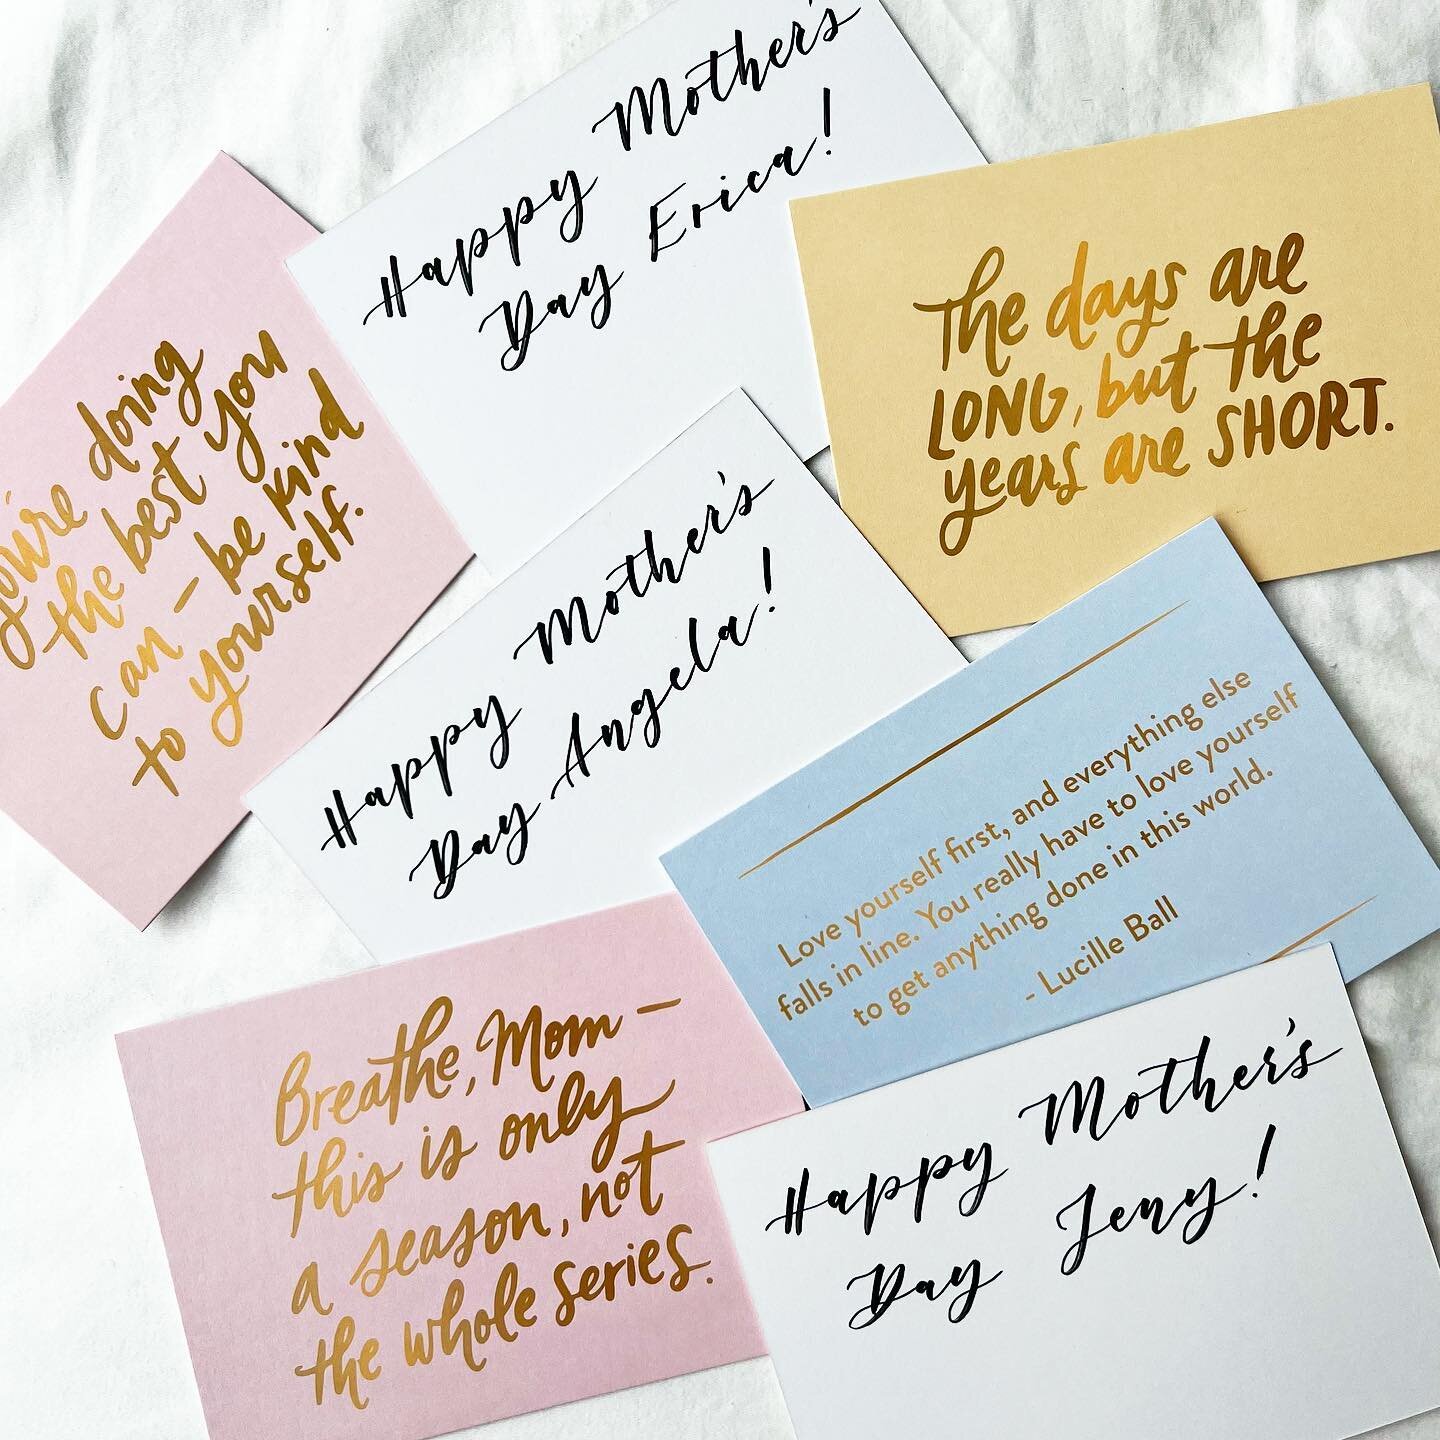 Happy Mother's
Day Erica!
The days are
LONG, but the
years are SHORT.
you're doing
the best you
can – be kind
to yourself.
Happy Mother's
Day Angela!
Love yourself first, and everything else
falls in line. You really have to love yourself
to get anything done in this world.
- Lucille Ball
Breathe, Mom –
this is only
a season, not
the whole series.
Happy Mother's
Day Jeny!